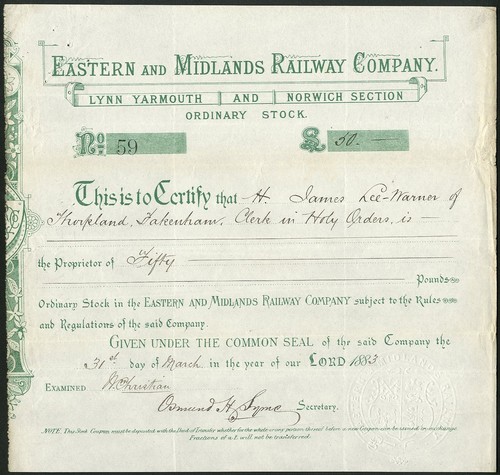 EASTERN AND MIDLANDS RAILWAY COMPANY.
LYNN YARMOUTH AND NORWICH SECTION
ORDINARY STOCK.
No. 59 £ 50.—
This is to Certify that H. James Lee-Warner of
Thorpland, Fakenham, Clerk in Holy Orders, is —
the Proprietor of Fifty
Pounds
Ordinary Stock in the EASTERN AND MIDLANDS RAILWAY COMPANY subject to the Rules
and Regulations of the said Company.
GIVEN UNDER THE COMMON SEAL of the said Company the
31st day of March in the year of our LORD 1883
EXAMINED Wm Christian
Osmund H. Syme Secretary.
NOTE. This Stock Coupon must be deposited with the Deed of Transfer whether for the whole or any portion thereof before a new Coupon can be issued in exchange.
Fractions of a £ will not be transferred.